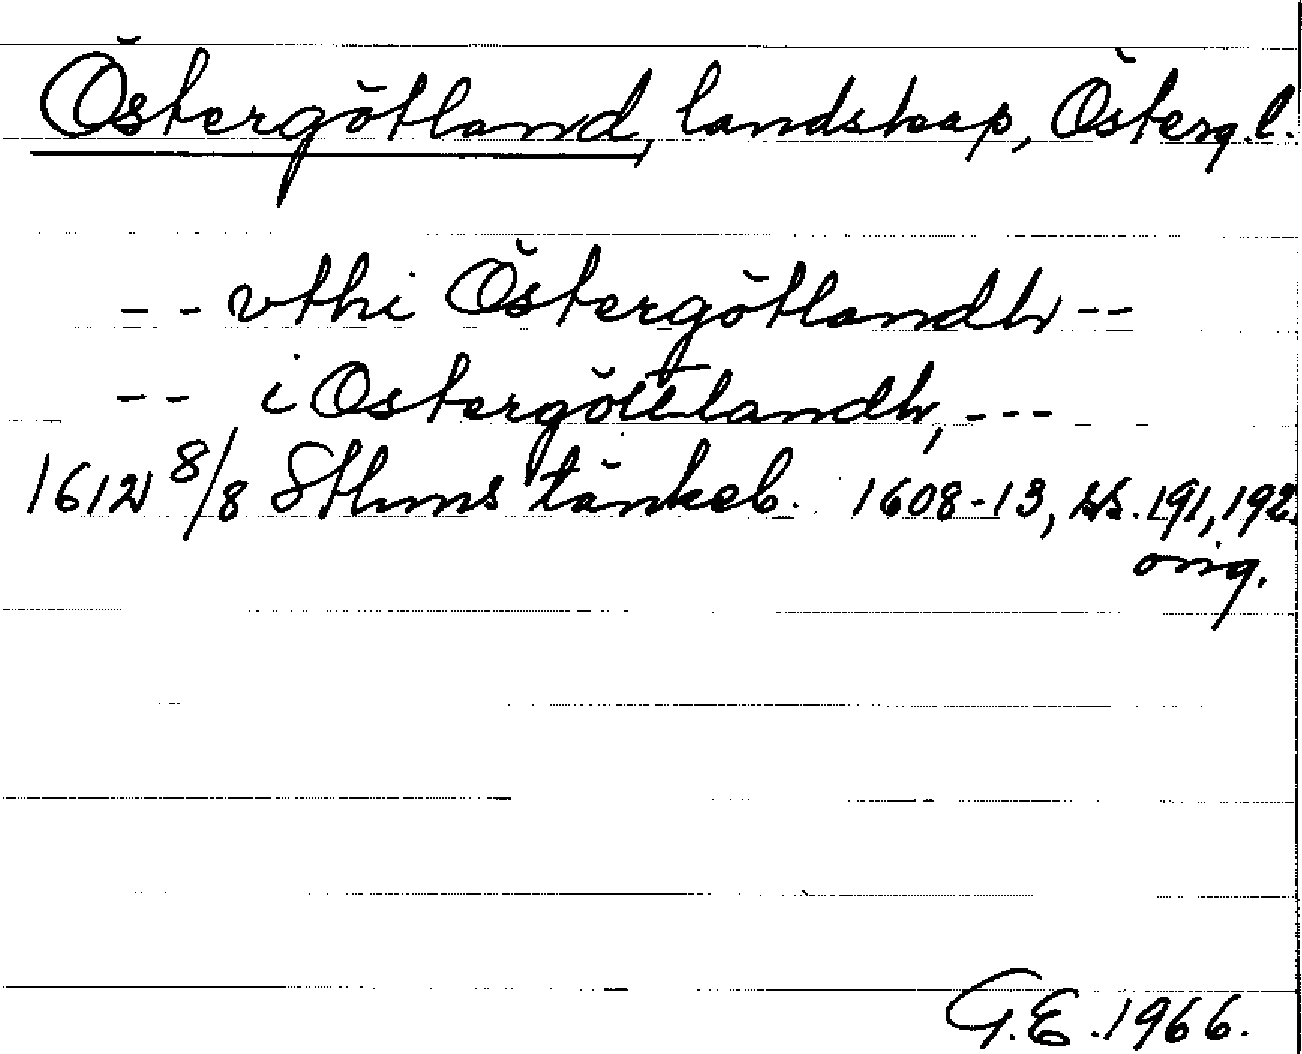 Östergötland, landskap, Österg.l.
-- vthi Östergötlandh --
-- i Ostergöttlandh, ---
1612 8/8 Sthms tänkeb. 1608-13, ss. 191, 192.
orig.
G.E. 1966.